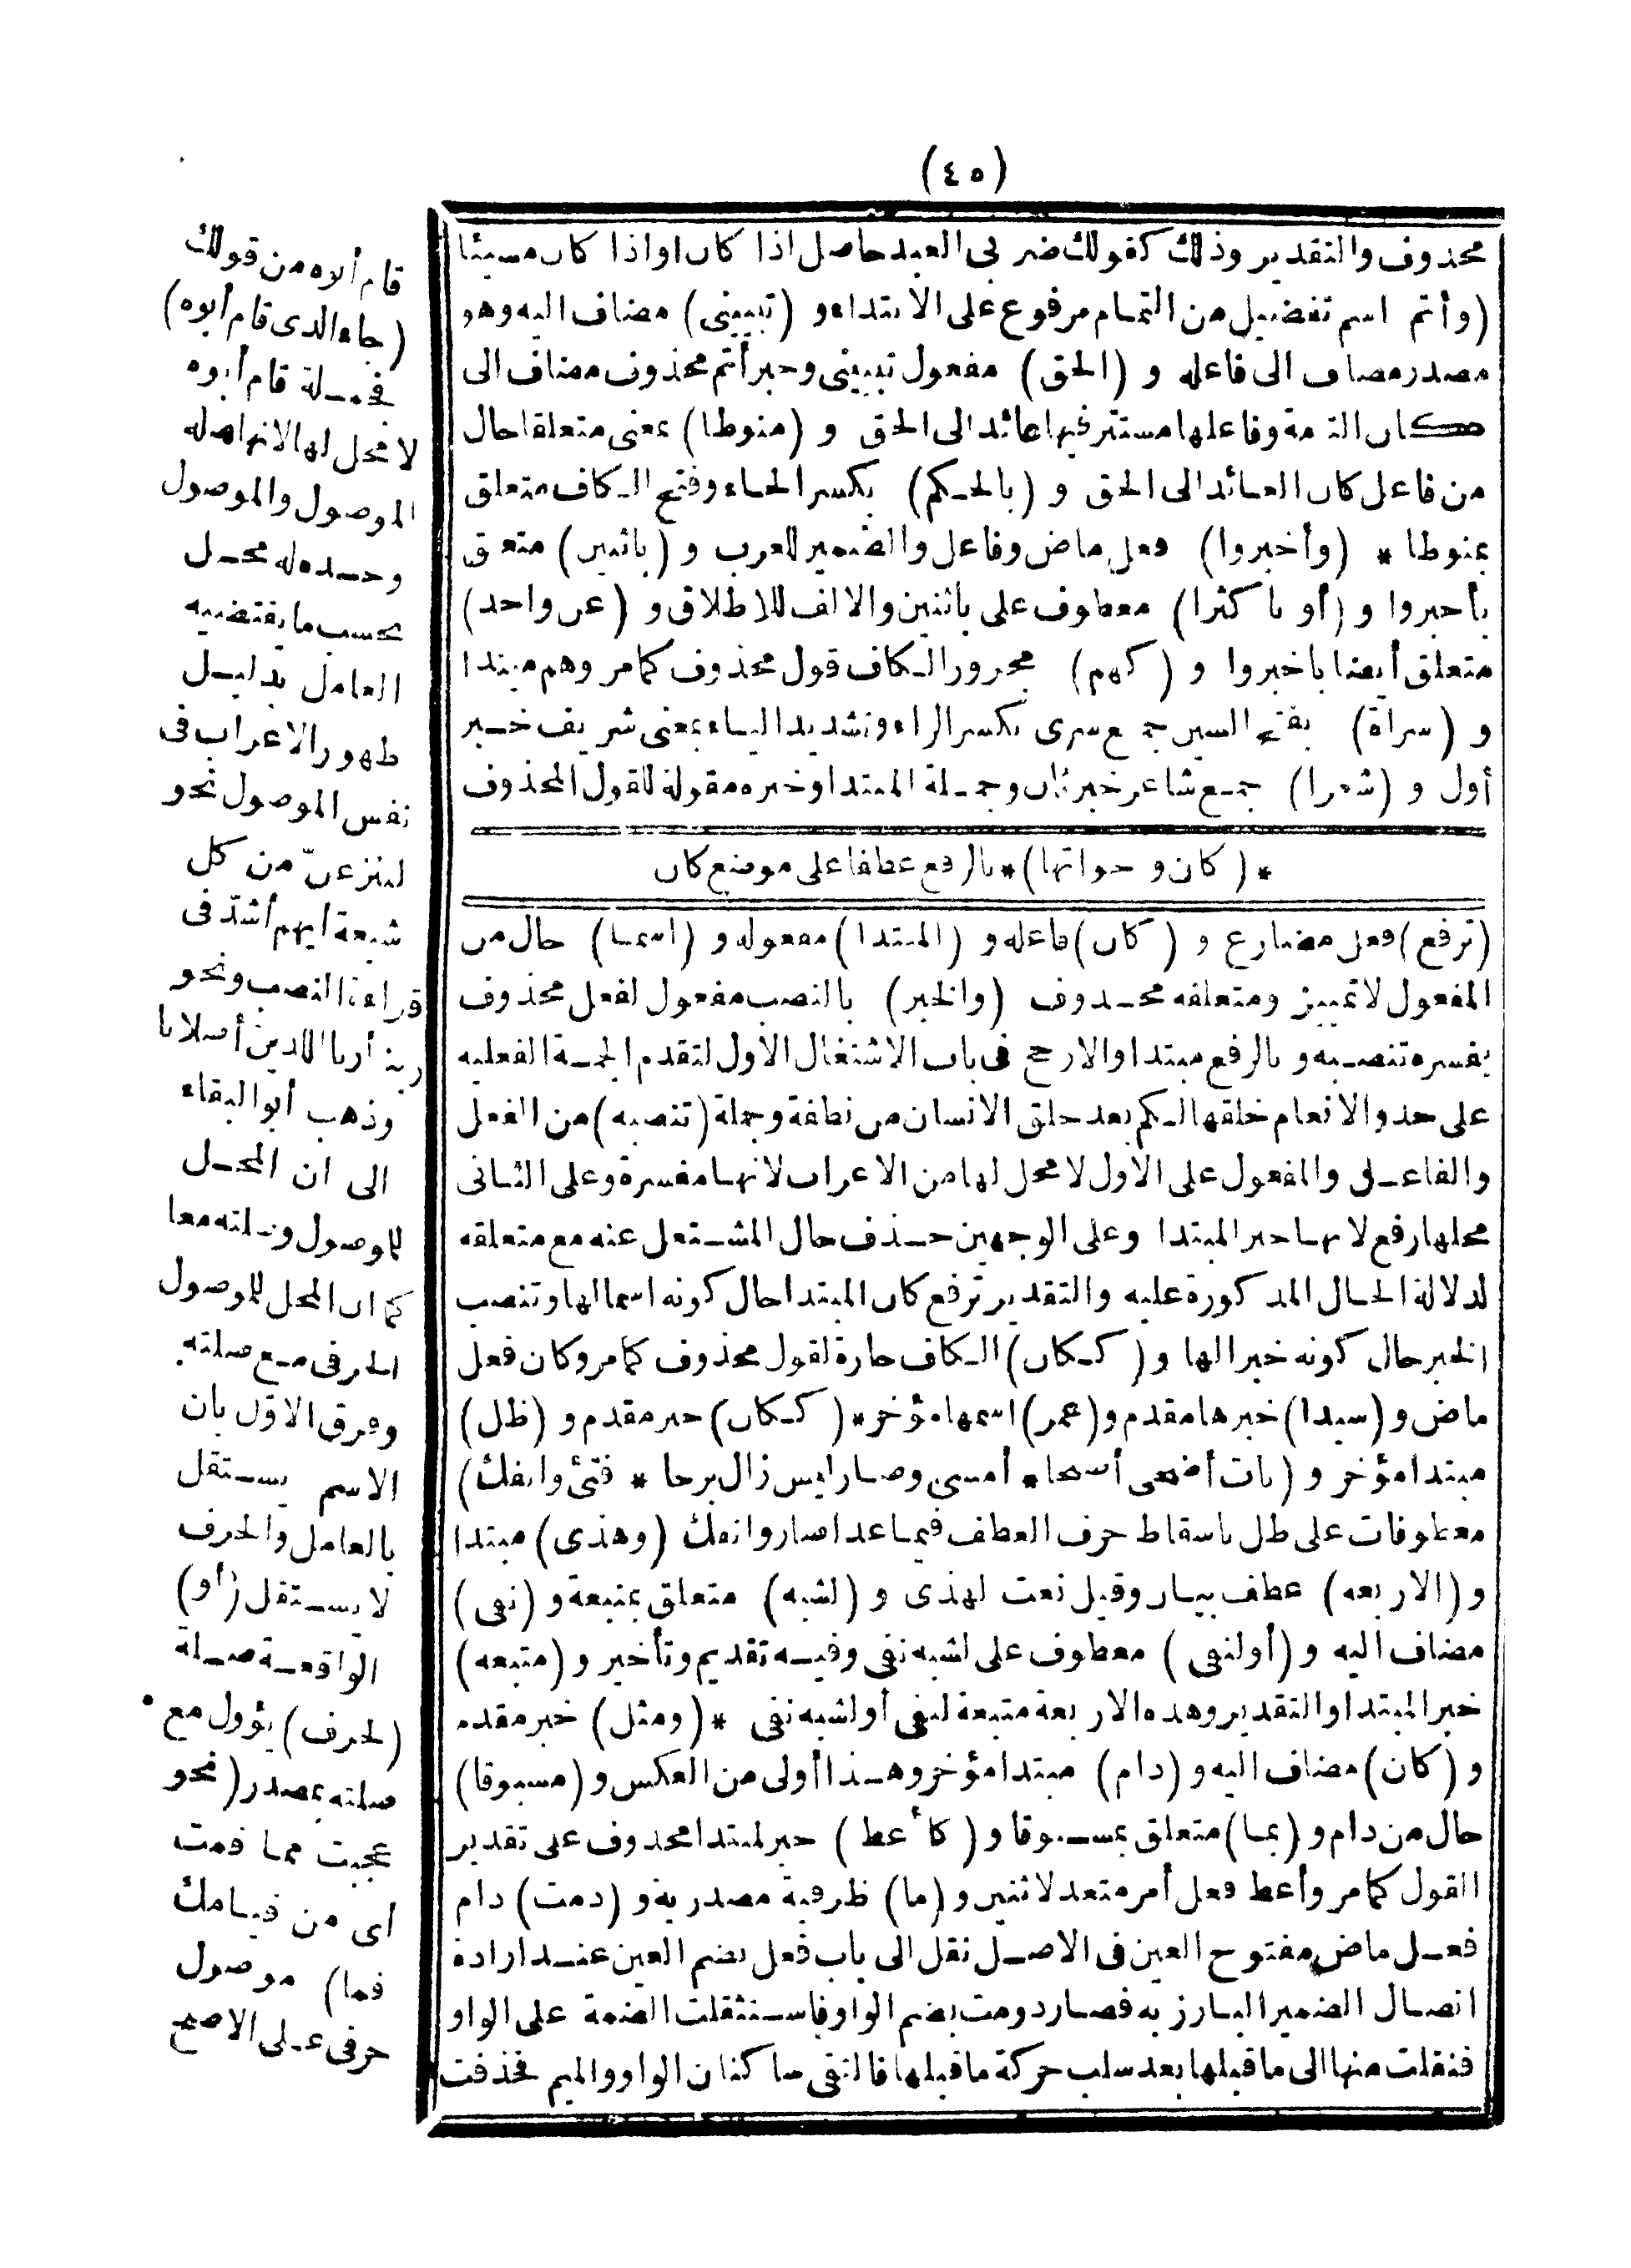 (٤٥)
محذوف والتقدير وذلك كقولك ضربى العبد حاصل اذا كان أو اذا كان مسيئا
(وأتم اسم تفضيل من التمام مرفوع على الابتداء و (تبيينى) مضاف اليه وهو
مصدر مضاف الى فاعله و (الحق) مفعول تبيينى وخبر أتم محذوف مضاف الى
كان التامة وفاعلها مستتر فيها عائد الى الحق و (منوطا) بمعنى متعلقا حال
من فاعل كان العائد الى الحق و (بالحكم) بكسر الحاء وفتح الكاف متعلق
بمنوطا * (وأخبروا) فعل ماض وفاعل والضمير للعرب و (باثنين) متعلق
بأخبروا و (أو باكثرا) معطوف على باثنين والالف للاطلاق و (عن واحد)
متعلق أيضا باخبروا و (كهم) مجرور الكاف قول محذوف كما مر وهم مبتدا
و (سراة) بفتح السين جمع سرى بكسر الراء وتشديد الياء بمعنى شريف خبر
أول و (شعرا) جمع شاعر خبر ثان وجملة المبتدا وخبره مقولة للقول المحذوف
* (كان واخواتها) * بالرفع عطفا على موضع كان
(ترفع) فعل مضارع و (كان) فاعله و (المبتدا) مفعوله و (اسما) حال من
المفعول لا تمييز ومتعلقه محذوف (والخبر) بالنصب مفعول لفعل محذوف
يفسره تنصبه وبالرفع مبتدا والارجح فى باب الاشتغال الاول لتقدم الجملة الفعلية
على حد والانعام خلقها لكم بعد خلق الانسان من نطفة وجملة (تنصبه) من الفعل
والفاعل والمفعول على الاول لا محل لها من الاعراب لانها مفسرة وعلى الثانى
محلها رفع لانها خبر المبتدا وعلى الوجهين حذف حال المشتغل عنه مع متعلقه
لدلالة الحال المذكورة عليه والتقدير ترفع كان المبتدا حال كونه اسما لها وتنصب
الخبر حال كونه خبرا لها و (ككان) الكاف جارة لقول محذوف كما مر وكان فعل
ماض و (سيدا) خبرها مقدم و (عمر) اسمها مؤخر * (ككان) خبر مقدم و (ظل)
مبتدا مؤخر و (بات أضحى أصبحا * أمسى وصار ليس زال برحا * فتئ وانفك)
معطوفات على ظل باسقاط حرف العطف فيما عدا صار وانفك (وهذى) مبتدا
و (الاربعه) عطف بيان وقيل نعت لهذى و (لشبه) متعلق بمتبعة و (نفى)
مضاف اليه و (أو لنفى) معطوف على لشبه نفى وفيه تقديم وتأخير و (متبعه)
خبر المبتدا والتقدير وهذه الاربعة متبعة لنفى أو لشبه نفى * (ومثل) خبر مقدم
و (كان) مضاف اليه و (دام) مبتدا مؤخر وهذا أولى من العكس و (مسبوقا)
حال من دام و (بما) متعلق بمسبوقا و (كأعط) خبر لمبتدا محذوف على تقدير
القول كما مر وأعط فعل أمر متعد لاثنين و (ما) ظرفية مصدرية و (دمت) دام
فعل ماض مفتوح العين فى الاصل نقل الى باب فعل بضم العين عند ارادة
اتصال الضمير البارز به فصار دومت بضم الواو فاستثقلت الضمة على الواو
فنقلت منها الى ما قبلها بعد سلب حركة ما قبلها فالتقى ساكنان الواو والميم فحذفت
قام أبوه من قولك
(جاء الذى قام أبوه)
فجملة قام أبوه
لا محل لها لانها صلة
الموصول والموصول
وحده له محل
بحسب ما يقتضيه
العامل بدليل
ظهور الاعراب فى
نفس الموصول نحو
لننزعنّ من كل
شيعة أيهم أشدّ فى
قراءة النصب ونحو
ربنا أرنا اللذين أضلانا
وذهب أبو البقاء
الى ان المحل
للموصول وصلته معا
كما ان المحل للموصول
الحرفى مع صلته
وفرق الاوّل بان
الاسم يستقل
بالعامل والحرف
لا يستقل (أو)
الواقعة صلة
(لحرف) يؤول مع
صلته بمصدر (نحو
عجبت مما قمت
أى من قيامك
فما) موصول
حرفى على الاصح